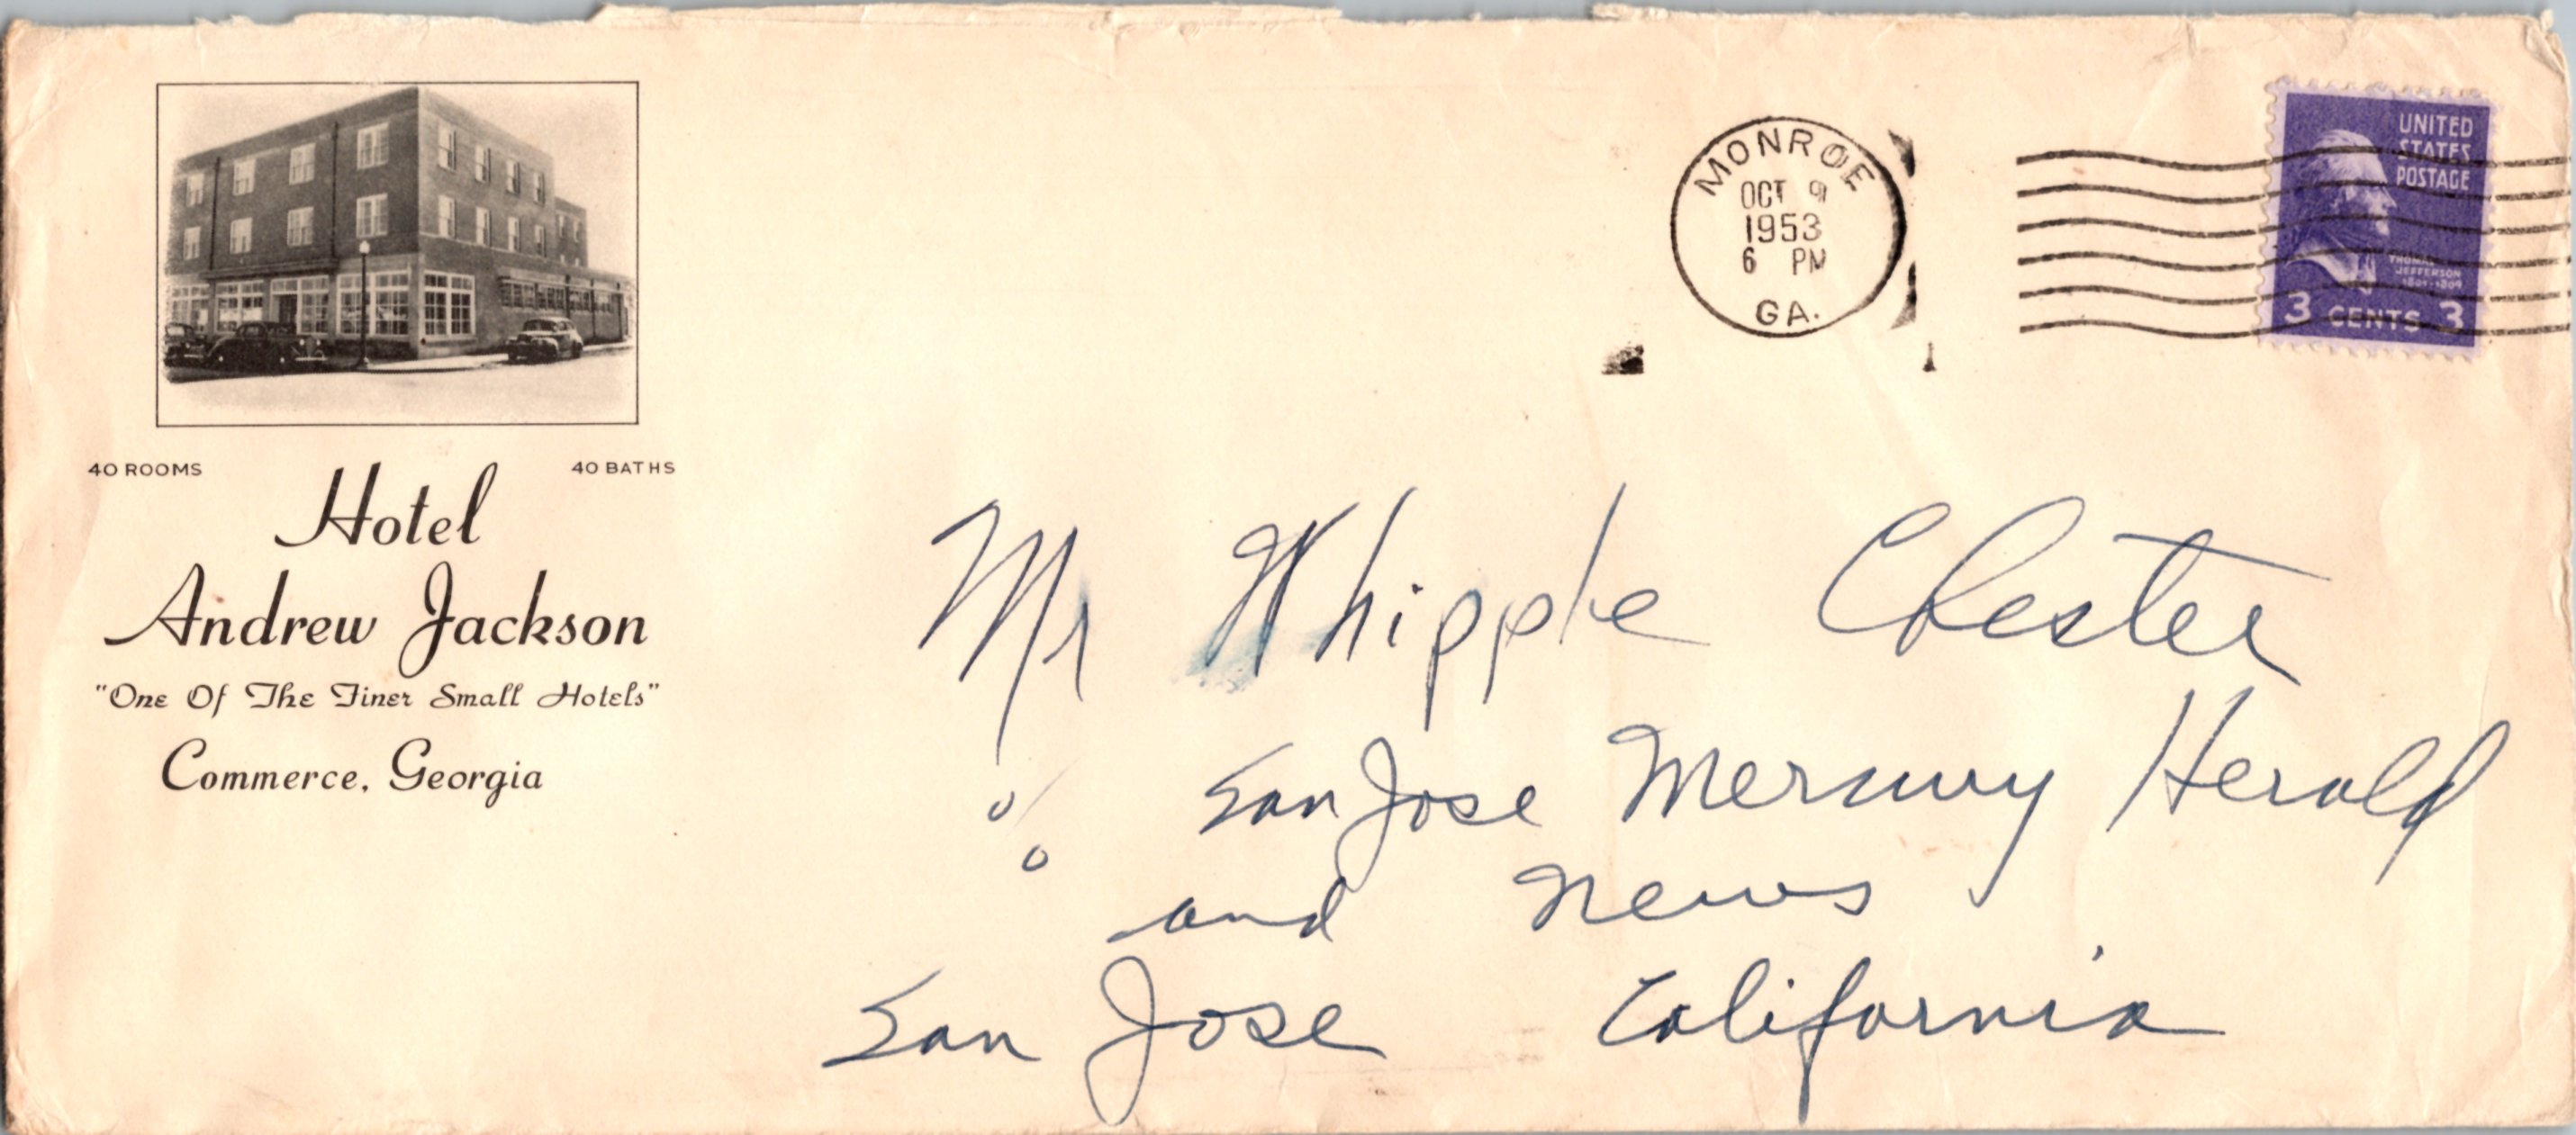 40 ROOMS 40 BATHS
Hotel
Andrew Jackson
"One Of The Finer Small Hotels"
Commerce, Georgia
MONROE
OCT 9
1953
6 PM
GA.
UNITED
STATES
POSTAGE
THOMAS
JEFFERSON
1801-1809
3 CENTS 3
Mr Whipple Chester
% San Jose Mercury Herald
and News
San Jose California